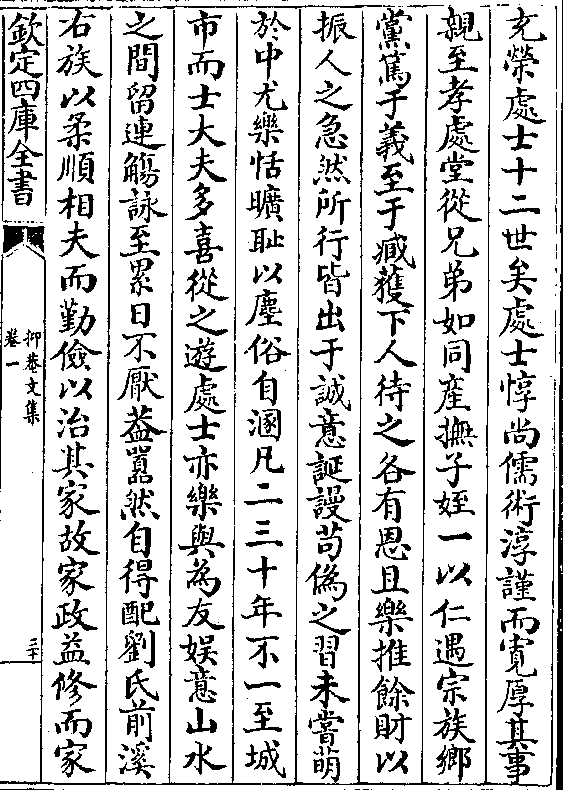 克榮處士十二世矣處士惇尚儒術淳謹而寛厚其事
親至孝處堂從兄弟如同產撫子姪一以仁遇宗族鄉
黨篤于義至于臧獲下人待之各有恩且樂推餘財以
振人之急然所行皆出于誠意誕謾苟偽之習未嘗萌
於中尤樂恬曠耻以塵俗自溷凡二三十年不一至城
市而士大夫多喜從之遊處士亦樂與為友娱意山水
之間留連觴詠至累日不厭葢囂然自得配劉氏前溪
右族以柔順相夫而勤儉以治其家故家政益修而家
欽定四庫全書
抑菴文集
卷一
二十